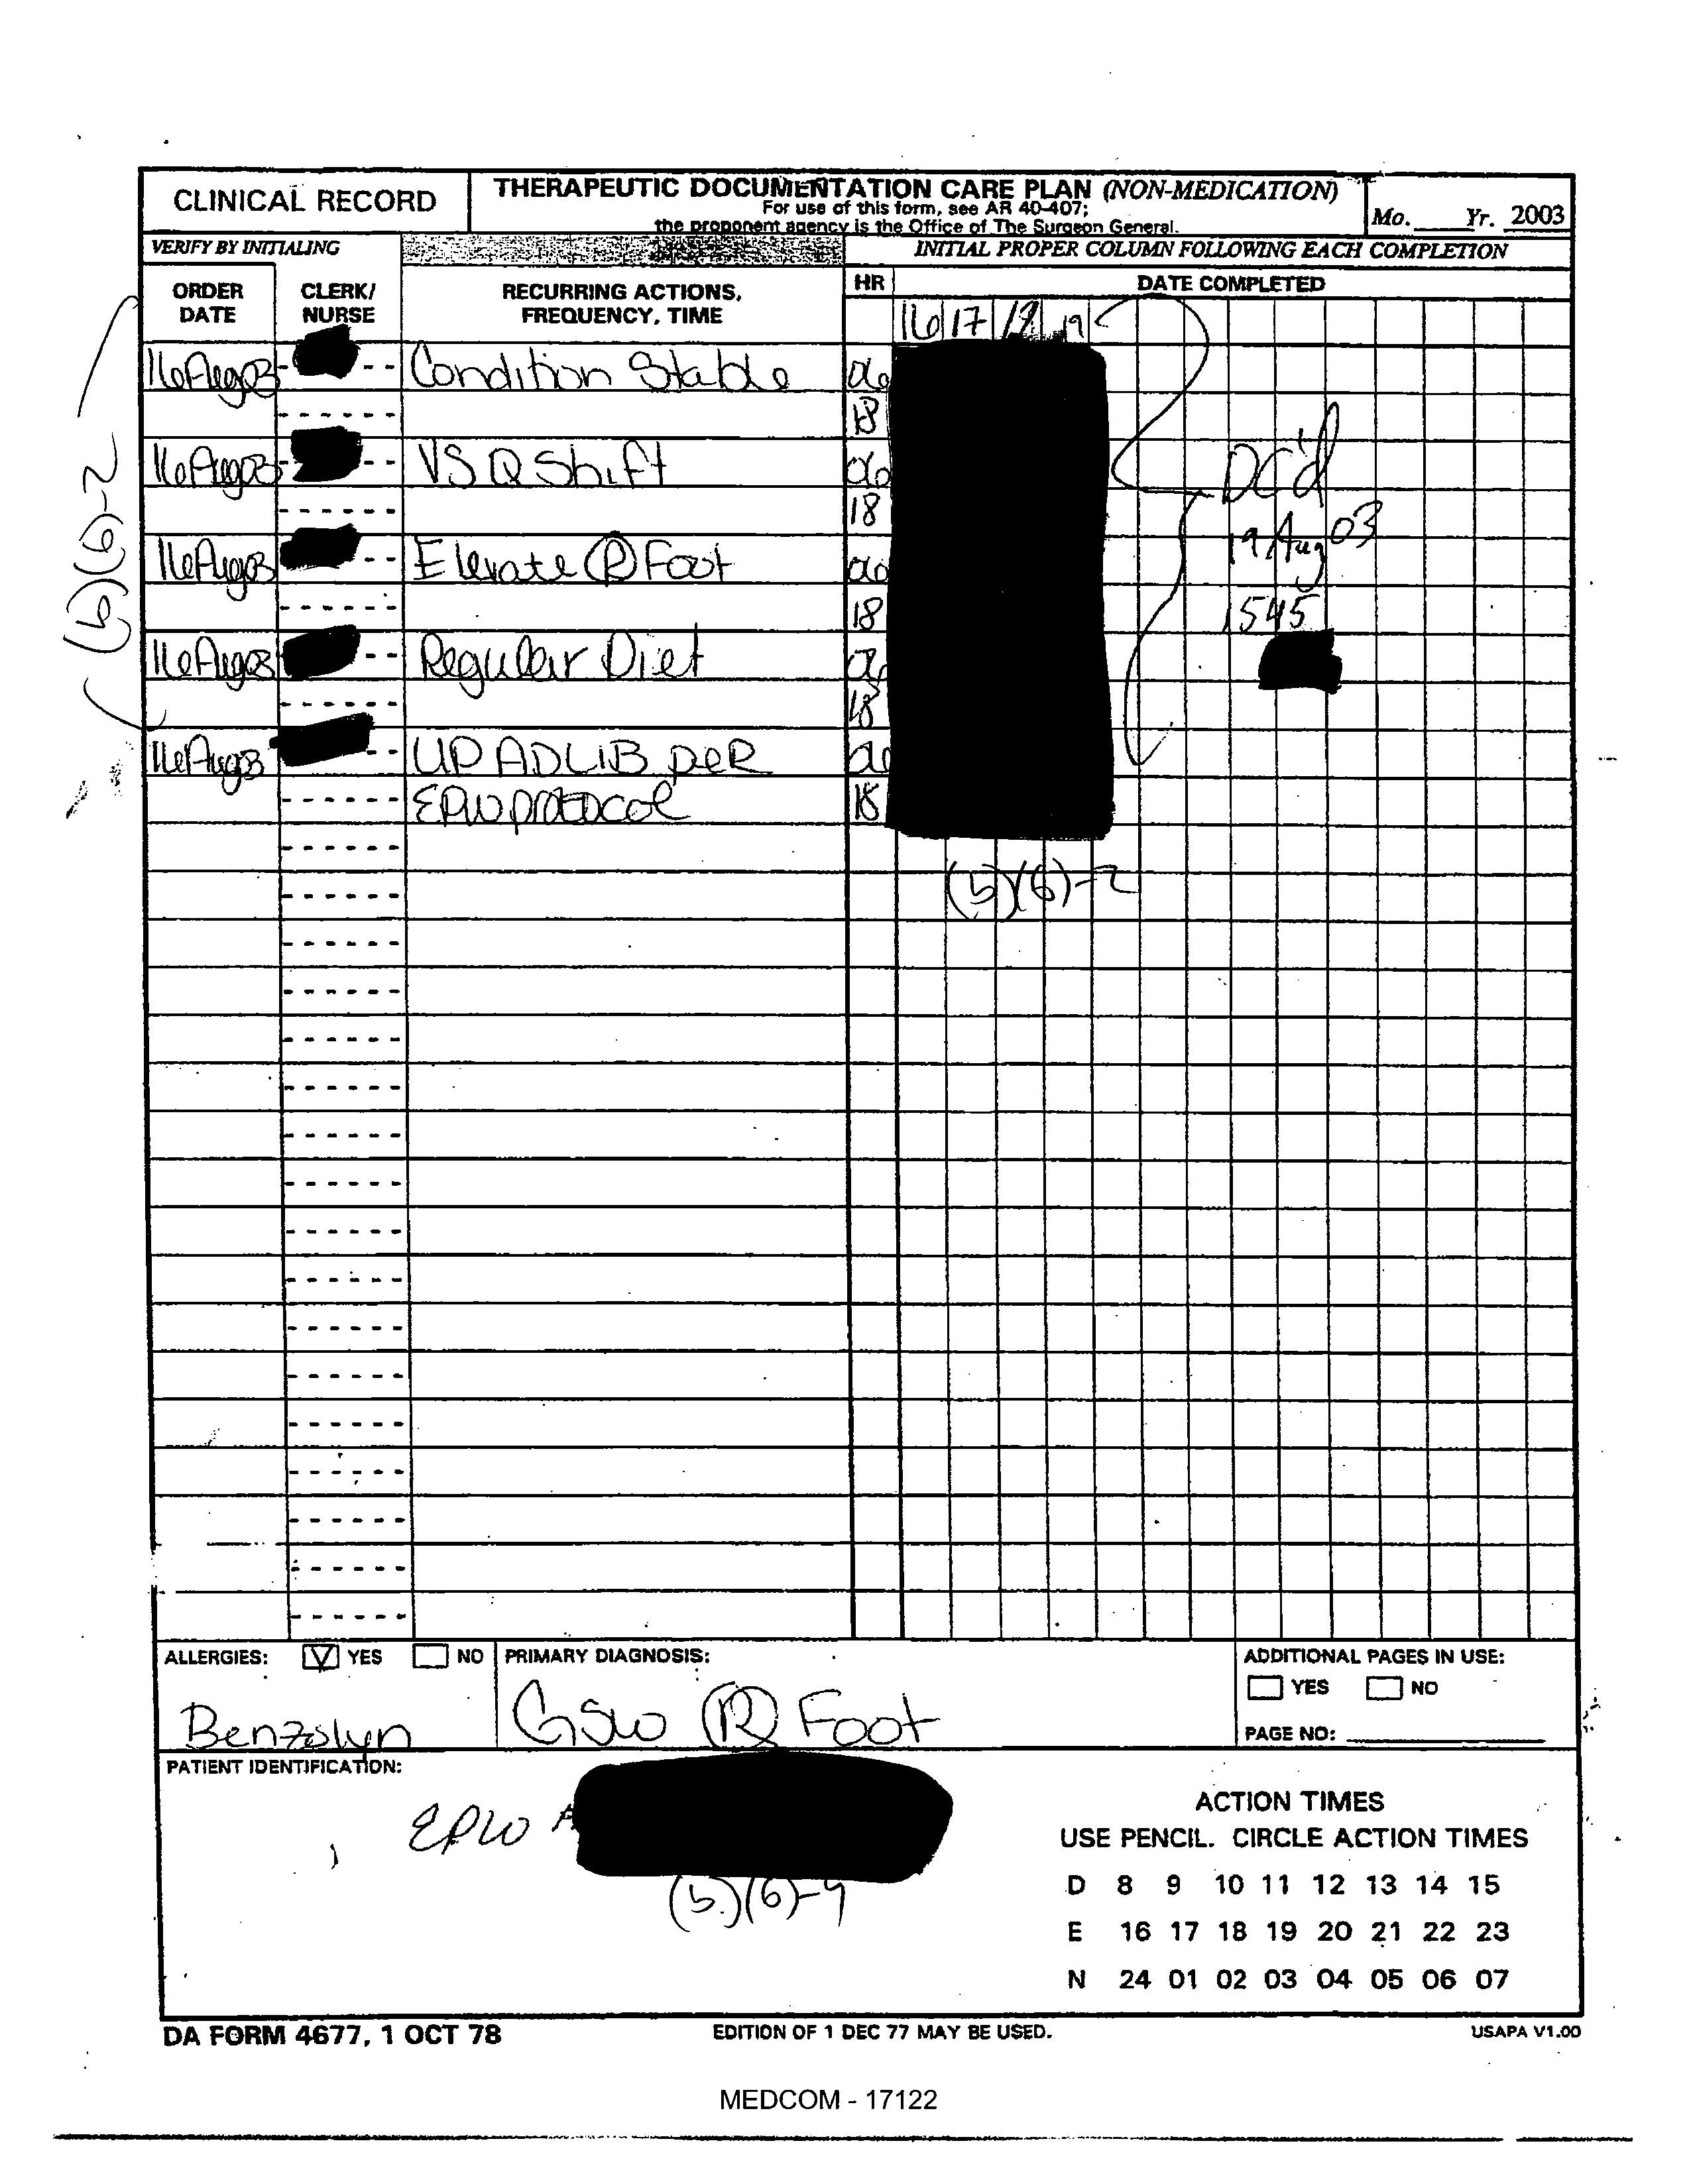 CLINICAL RECORD
THERAPEUTIC DOCUMENTATION CARE PLAN (NON-MEDICATION)
For use of this form, see AR 40-407;
the proponent agency is the Office of The Surgeon General.
Mo. Yr. 2003
VERIFY BY INITIALING
INITIAL PROPER COLUMN FOLLOWING EACH COMPLETION
ORDER DATE
CLERK/ NURSE
RECURRING ACTIONS, FREQUENCY, TIME
HR
DATE COMPLETED
16 17 18 19
16Aug03 Condition Stable 06
18
16Aug03 VS Q Shift 06
18
16Aug03 Elevate Ⓡ Foot 06
18
16Aug03 Regular Diet 06
18
16Aug03 UP ADLIB per 06
EPW protocol 18
DC'd
19 Aug 03
1545
(b)(6)-2
(b)(6)-2
ALLERGIES: YES NO
Benzolyn
PRIMARY DIAGNOSIS:
GSW Ⓡ Foot
ADDITIONAL PAGES IN USE:
YES NO
PAGE NO:
PATIENT IDENTIFICATION:
EPW #
(b)(6)-4
ACTION TIMES
USE PENCIL. CIRCLE ACTION TIMES
D 8 9 10 11 12 13 14 15
E 16 17 18 19 20 21 22 23
N 24 01 02 03 04 05 06 07
DA FORM 4677, 1 OCT 78
EDITION OF 1 DEC 77 MAY BE USED.
USAPA V1.00
MEDCOM - 17122